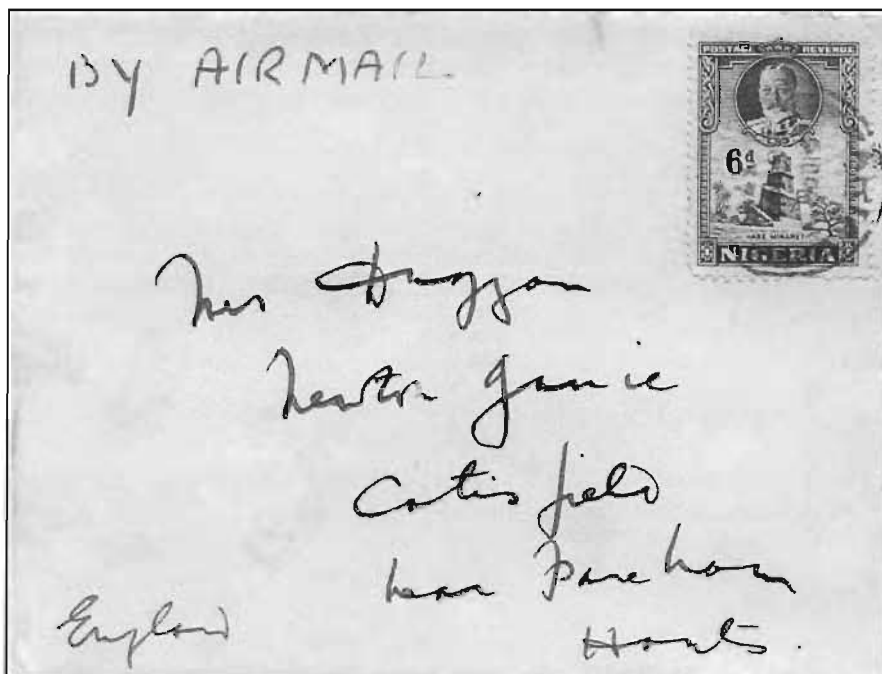 BY AIR MAIL
POSTAGE REVENUE
6d
HABE MINARET
NIGERIA
Mrs Duggan
Newton
Catisfield
near Fareham
Hants.
England